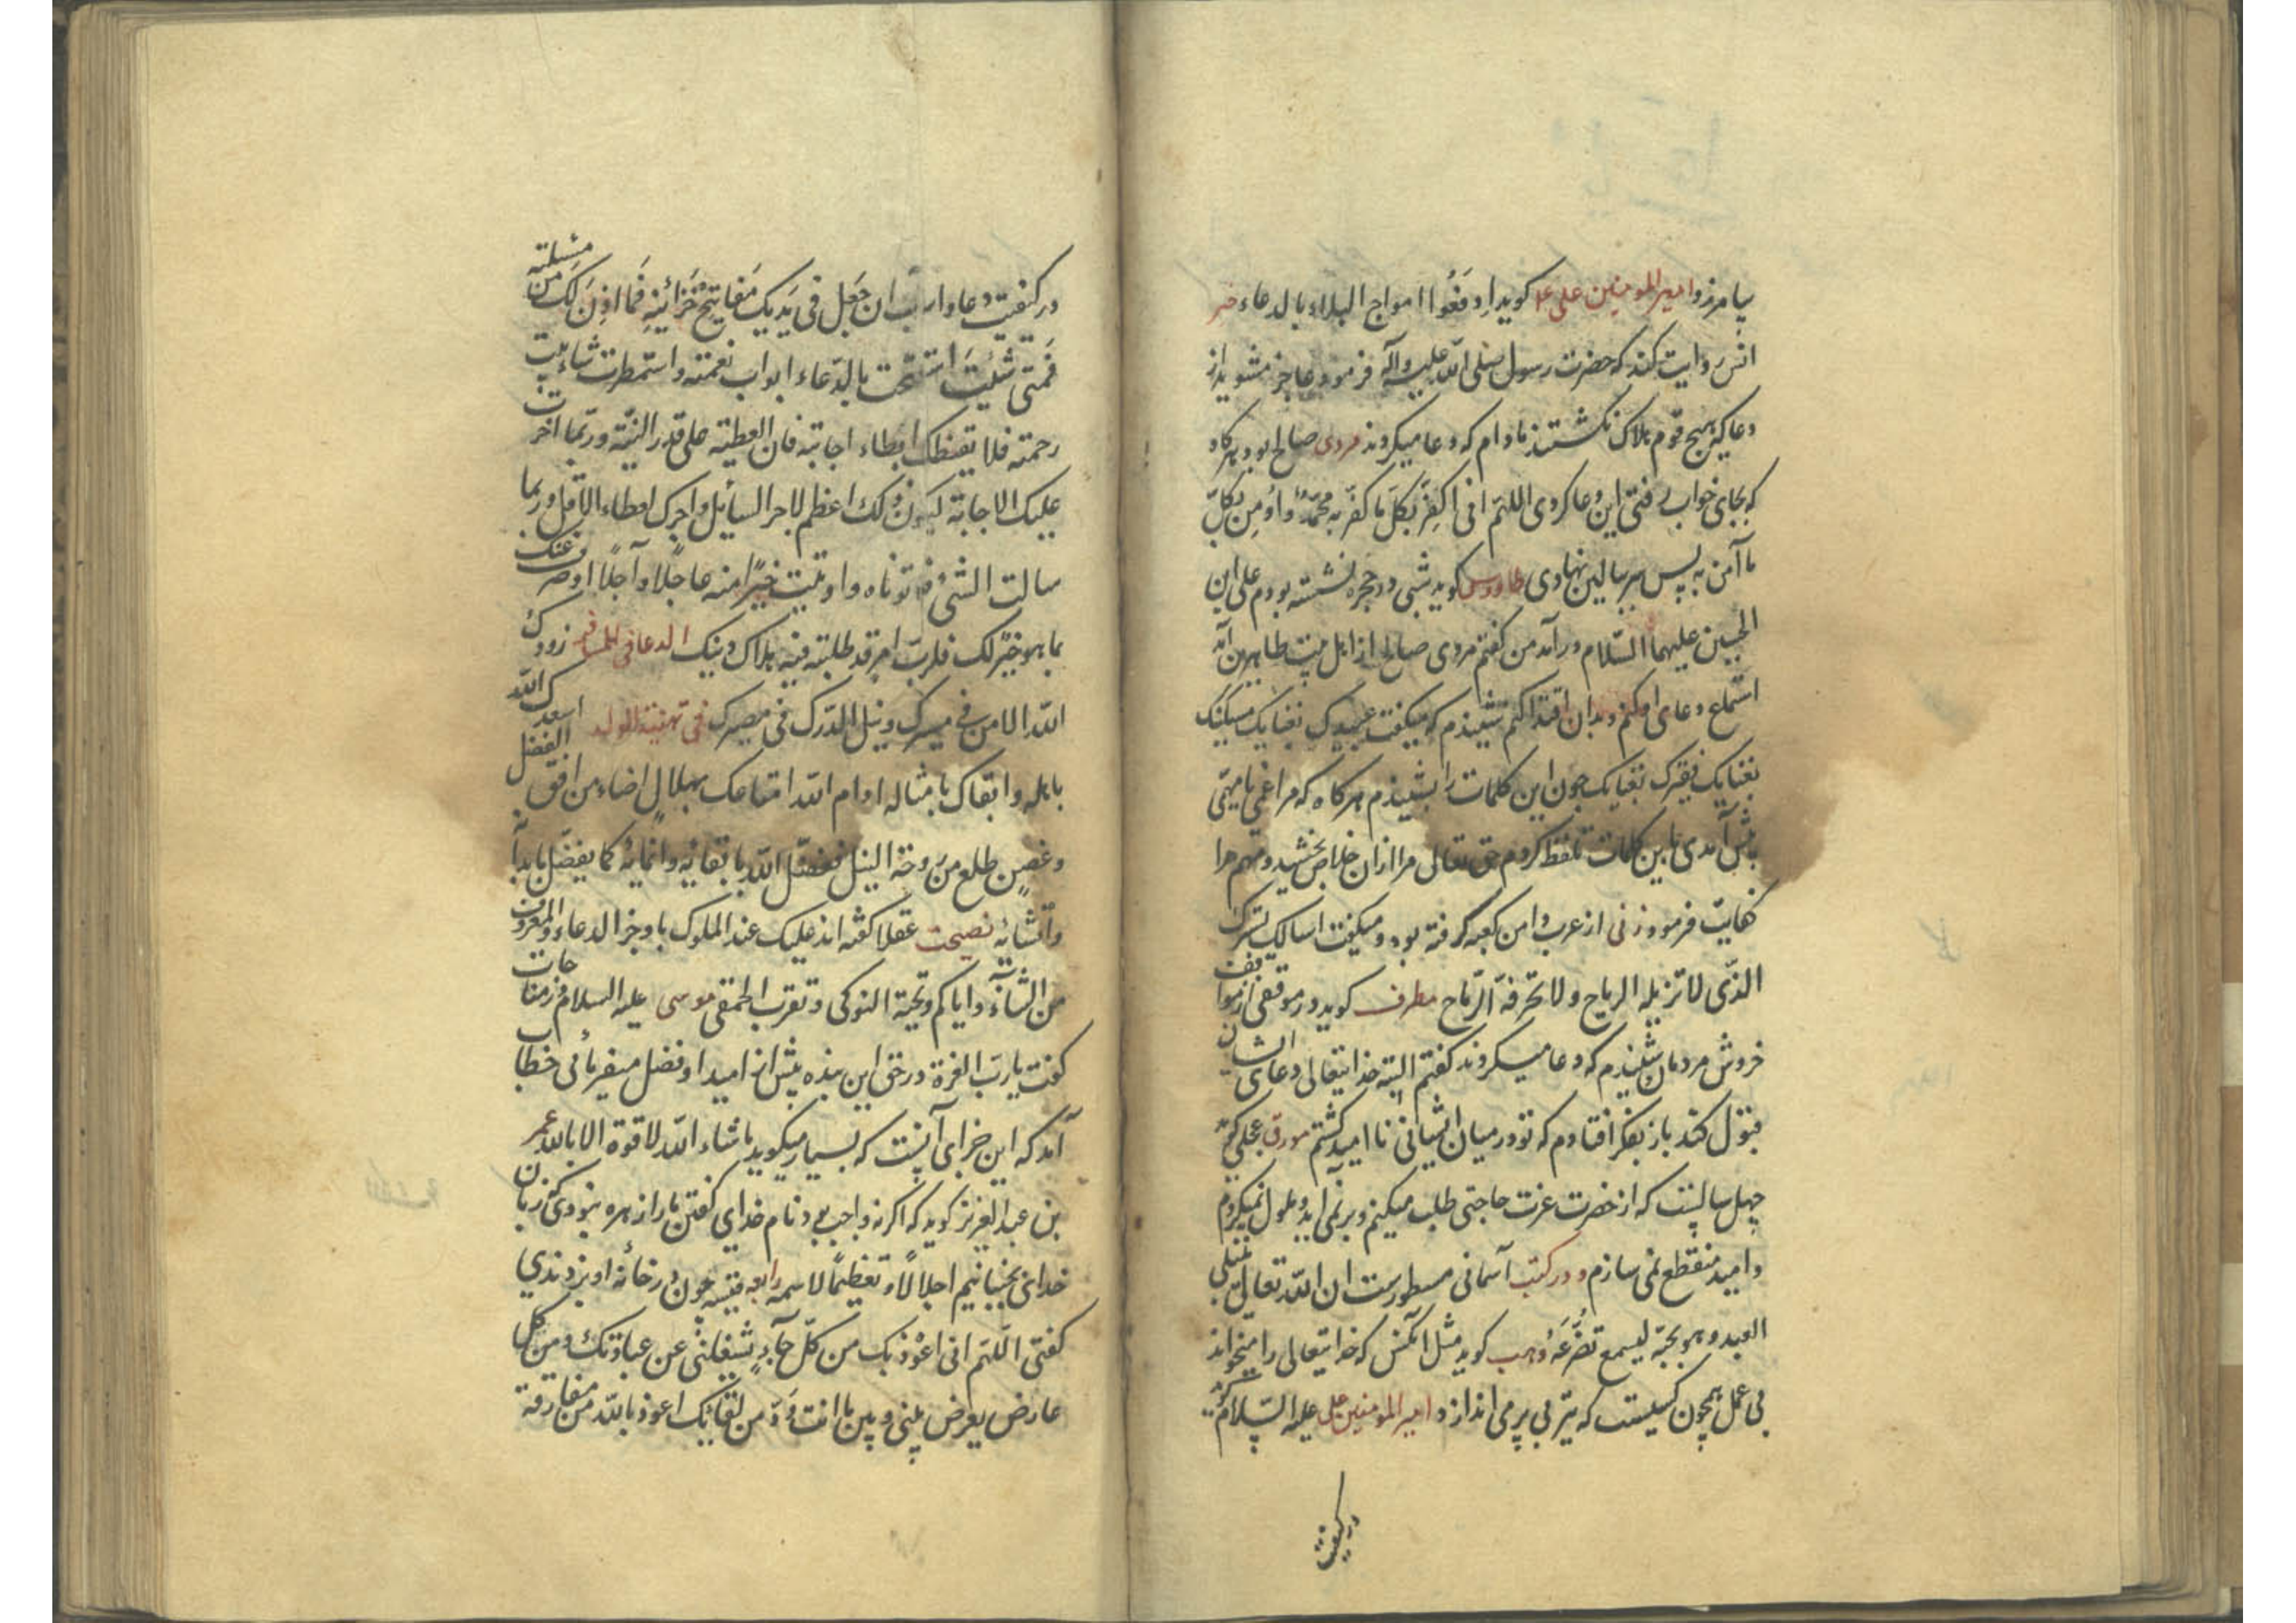 بیامرزد امیر المومنین علی ع کوید ادفعوا امواج البلاء بالدعاء
انس روایت کند که حضرت رسول صلی الله علیه وآله فرمود عاجز مشوید از
دعا که هیچ قوم هلاک نکشتند مادام که دعا میکردند مردی صالح بود هرکاه
که بجای خواب رفتی این دعا کردی اللهم انی اکفر بکل ما کفر به محمد واومن بکل
ما آمن به پس سر ببالین نهادی طاوس کوید شبی در حجره نشسته بودم علی ابن
الحسین علیهما السلام درآمد من کفتم مردی صالح از اهل بیت طاهرین آمد
استماع دعای او کنم وبدان اقتدا کنم شنیدم که میکفت عبیدک بفنایک مسکینک
بفنایک فقیرک بفنایک چون این کلمات را بشنیدم هرکاه که مرا غمی یا مهمی
پیش آمدی باین کلمات تلفظ کردم حق تعالی مرا ازان خلاص بخشید ومهم مرا
کفایت فرمود زنی از عرب دامن کعبه کرفته بود و میکفت اسالک بسترک
الذی لا تزیله الریاح ولا تخرقه الرماح مطرف کوید در موقفی از مواقف
خروش مردمان شنیدم که دعا میکردند کفتم البته خدایتعالی دعای ایشان
قبول کند باز بفکر افتادم که تو در میان ایشانی نا امید کشتم مورق عجلی کوید
چهل سالست که از حضرت عزت حاجتی طلب میکنم و بر نمی اید وملول نمیکردم
وامید منقطع نمی سازم و در کتب آسمانی مسطورست ان الله تعالی یبتلی
العبد وهو یحبه لیسمع تضرعه وهب کوید مثل انکس که خدایتعالی را میخواند
بی عمل همچون کسیست که تیر بی پر می اندازد امیر المومنین علی علیه السلام کوید
در کیفیت
در کیفیت دعا وارب ان جعل فی یدیک مفاتیح خزائنه فما اذن لک من مسئلته
فمتی شئت استفتحت بالدعاء ابواب نعمته واستمطرت شآبیب
رحمته فلا یقنطک ابطاء اجابته فان العطیه علی قدر النیة وربما اخرت
علیک الاجابة لیکون ذلک اعظم لاجر السائل واجزل لعطاء الآمل وربما
سالت الشئ فلا توتاه واوتیت خیرا منه عاجلا وآجلا اوصرف عنک
بما هو خیر لک فلرب امر قد طلبته فیه هلاک دینک الدعا فی المسافر زودک
الله الامن فی مسیرک ونیل الدرک فی مصیرک فی تهنیة المولود اسعدک الله
باهله وابقاک بامثاله ادام الله امتاعک بهلال اضاء من افق الفضل
وغصن طلع من دوحة النبل فتفضل الله بابقائه وانمائه کما یفضل بابدائه
وانشائه نصیحت عقلا کفته اند علیک عند الملوک باوجز الدعاء والمعروف
من الثناء وایاکم وتحیة النوکی وتقرب الحمقی موسی علیه السلام در مناجات
کفت یا رب العزة در حق این بنده بیش از امید او فضل میفرمائی خطاب
آمد که این جزای آنست که بسیار میکوید ما شاء الله لا قوة الا بالله عمر
بن عبد العزیز کوید که اکر نه واجب بود نام خدای کفتن ما را زهره نبودی که زبان
خدای بجنبانیم اجلالا وتعظیما لاسمه رابعه قیسیه چون در خانه او بزدندی
کفتی اللهم انی اعوذ بک من کل جآء یشغلنی عن عبادتک ومن کل
عارض یعرض بینی وبین ما انت من لقائک اعوذ بالله من مفارقة